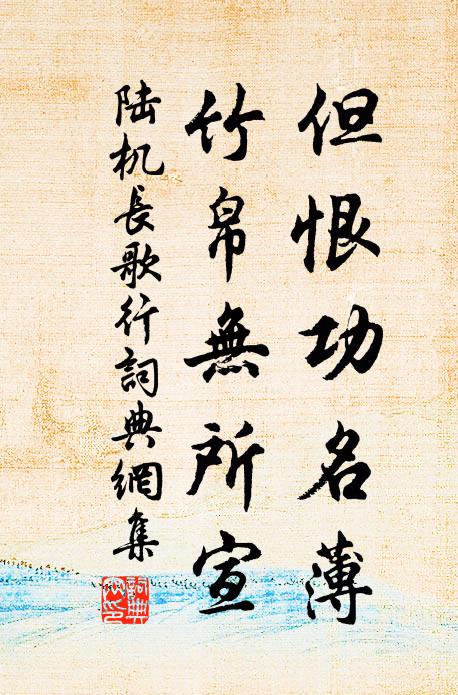 但恨功名薄
竹帛無所宣
陆机長歌行詞典網集